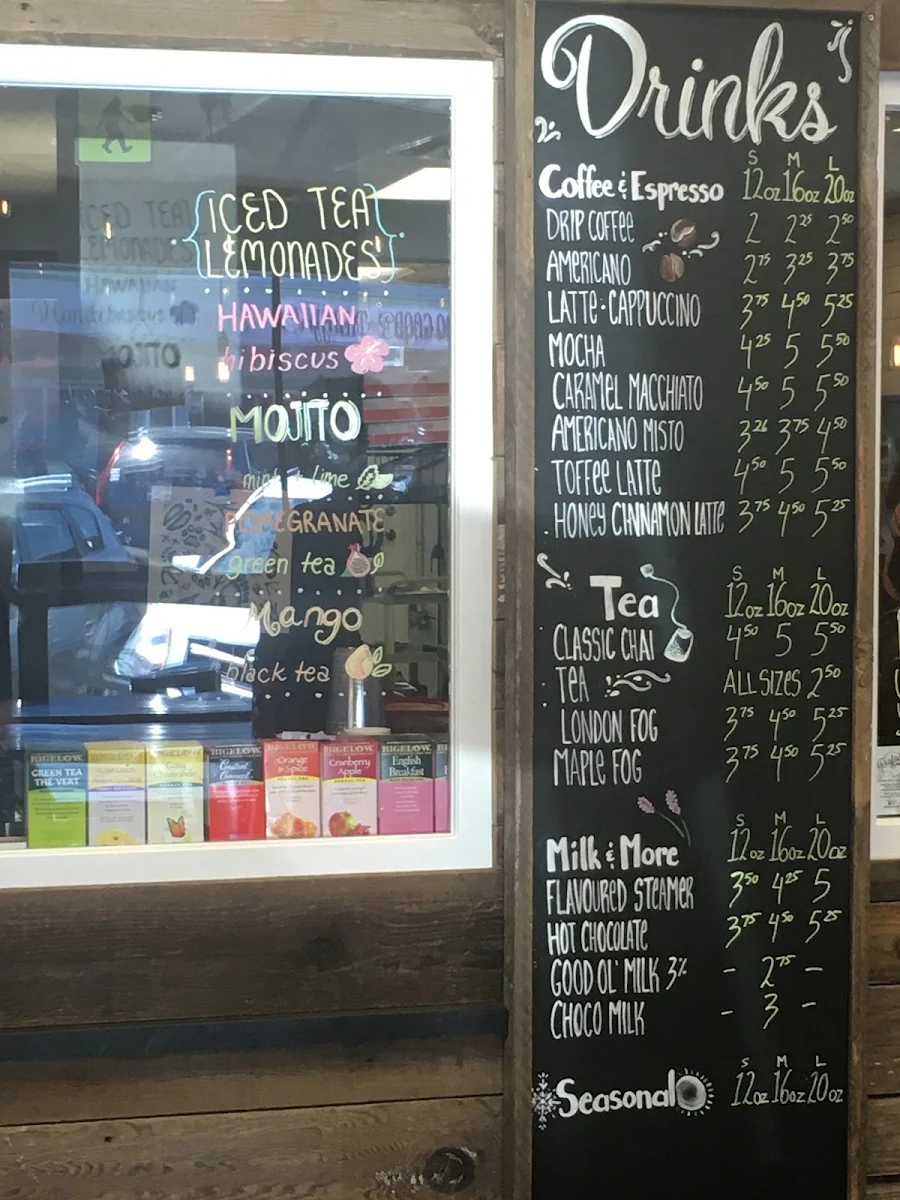 {ICED TEA
LEMONADES}
HAWAIIAN
hibiscus
MOJITO
mint + lime
POMEGRANATE
green tea
Mango
black tea
BIGELOW
GREEN TEA
THE VERT
BIGELOW
BIGELOW
BIGELOW
Constant
Comment
BIGELOW
Orange
& Spice
BIGELOW
Cranberry
Apple
BIGELOW
English
Breakfast
Drinks
S M L
Coffee & Espresso 12oz 16oz 20oz
DRIP COFFEE 2 2 25 2 50
AMERICANO 2 75 3 25 3 75
LATTE - CAPPUCCINO 3 75 4 50 5 25
MOCHA 4 25 5 5 50
CARAMEL MACCHIATO 4 50 5 5 50
AMERICANO MISTO 3 26 3 75 4 50
TOFFEE LATTE 4 50 5 5 50
HONEY CINNAMON LATTE 3 75 4 50 5 25
S M L
Tea 12oz 16oz 20oz
CLASSIC CHAI 4 50 5 5 50
TEA ALL SIZES 2 50
LONDON FOG 3 75 4 50 5 25
MAPLE FOG 3 75 4 50 5 25
S M L
Milk & More 12oz 16oz 20oz
FLAVOURED STEAMER 3 50 4 25 5
HOT CHOCOLATE 3 75 4 50 5 25
GOOD OL' MILK 3% - 2 75 -
CHOCO MILK - 3 -
S M L
Seasonal 12oz 16oz 20oz